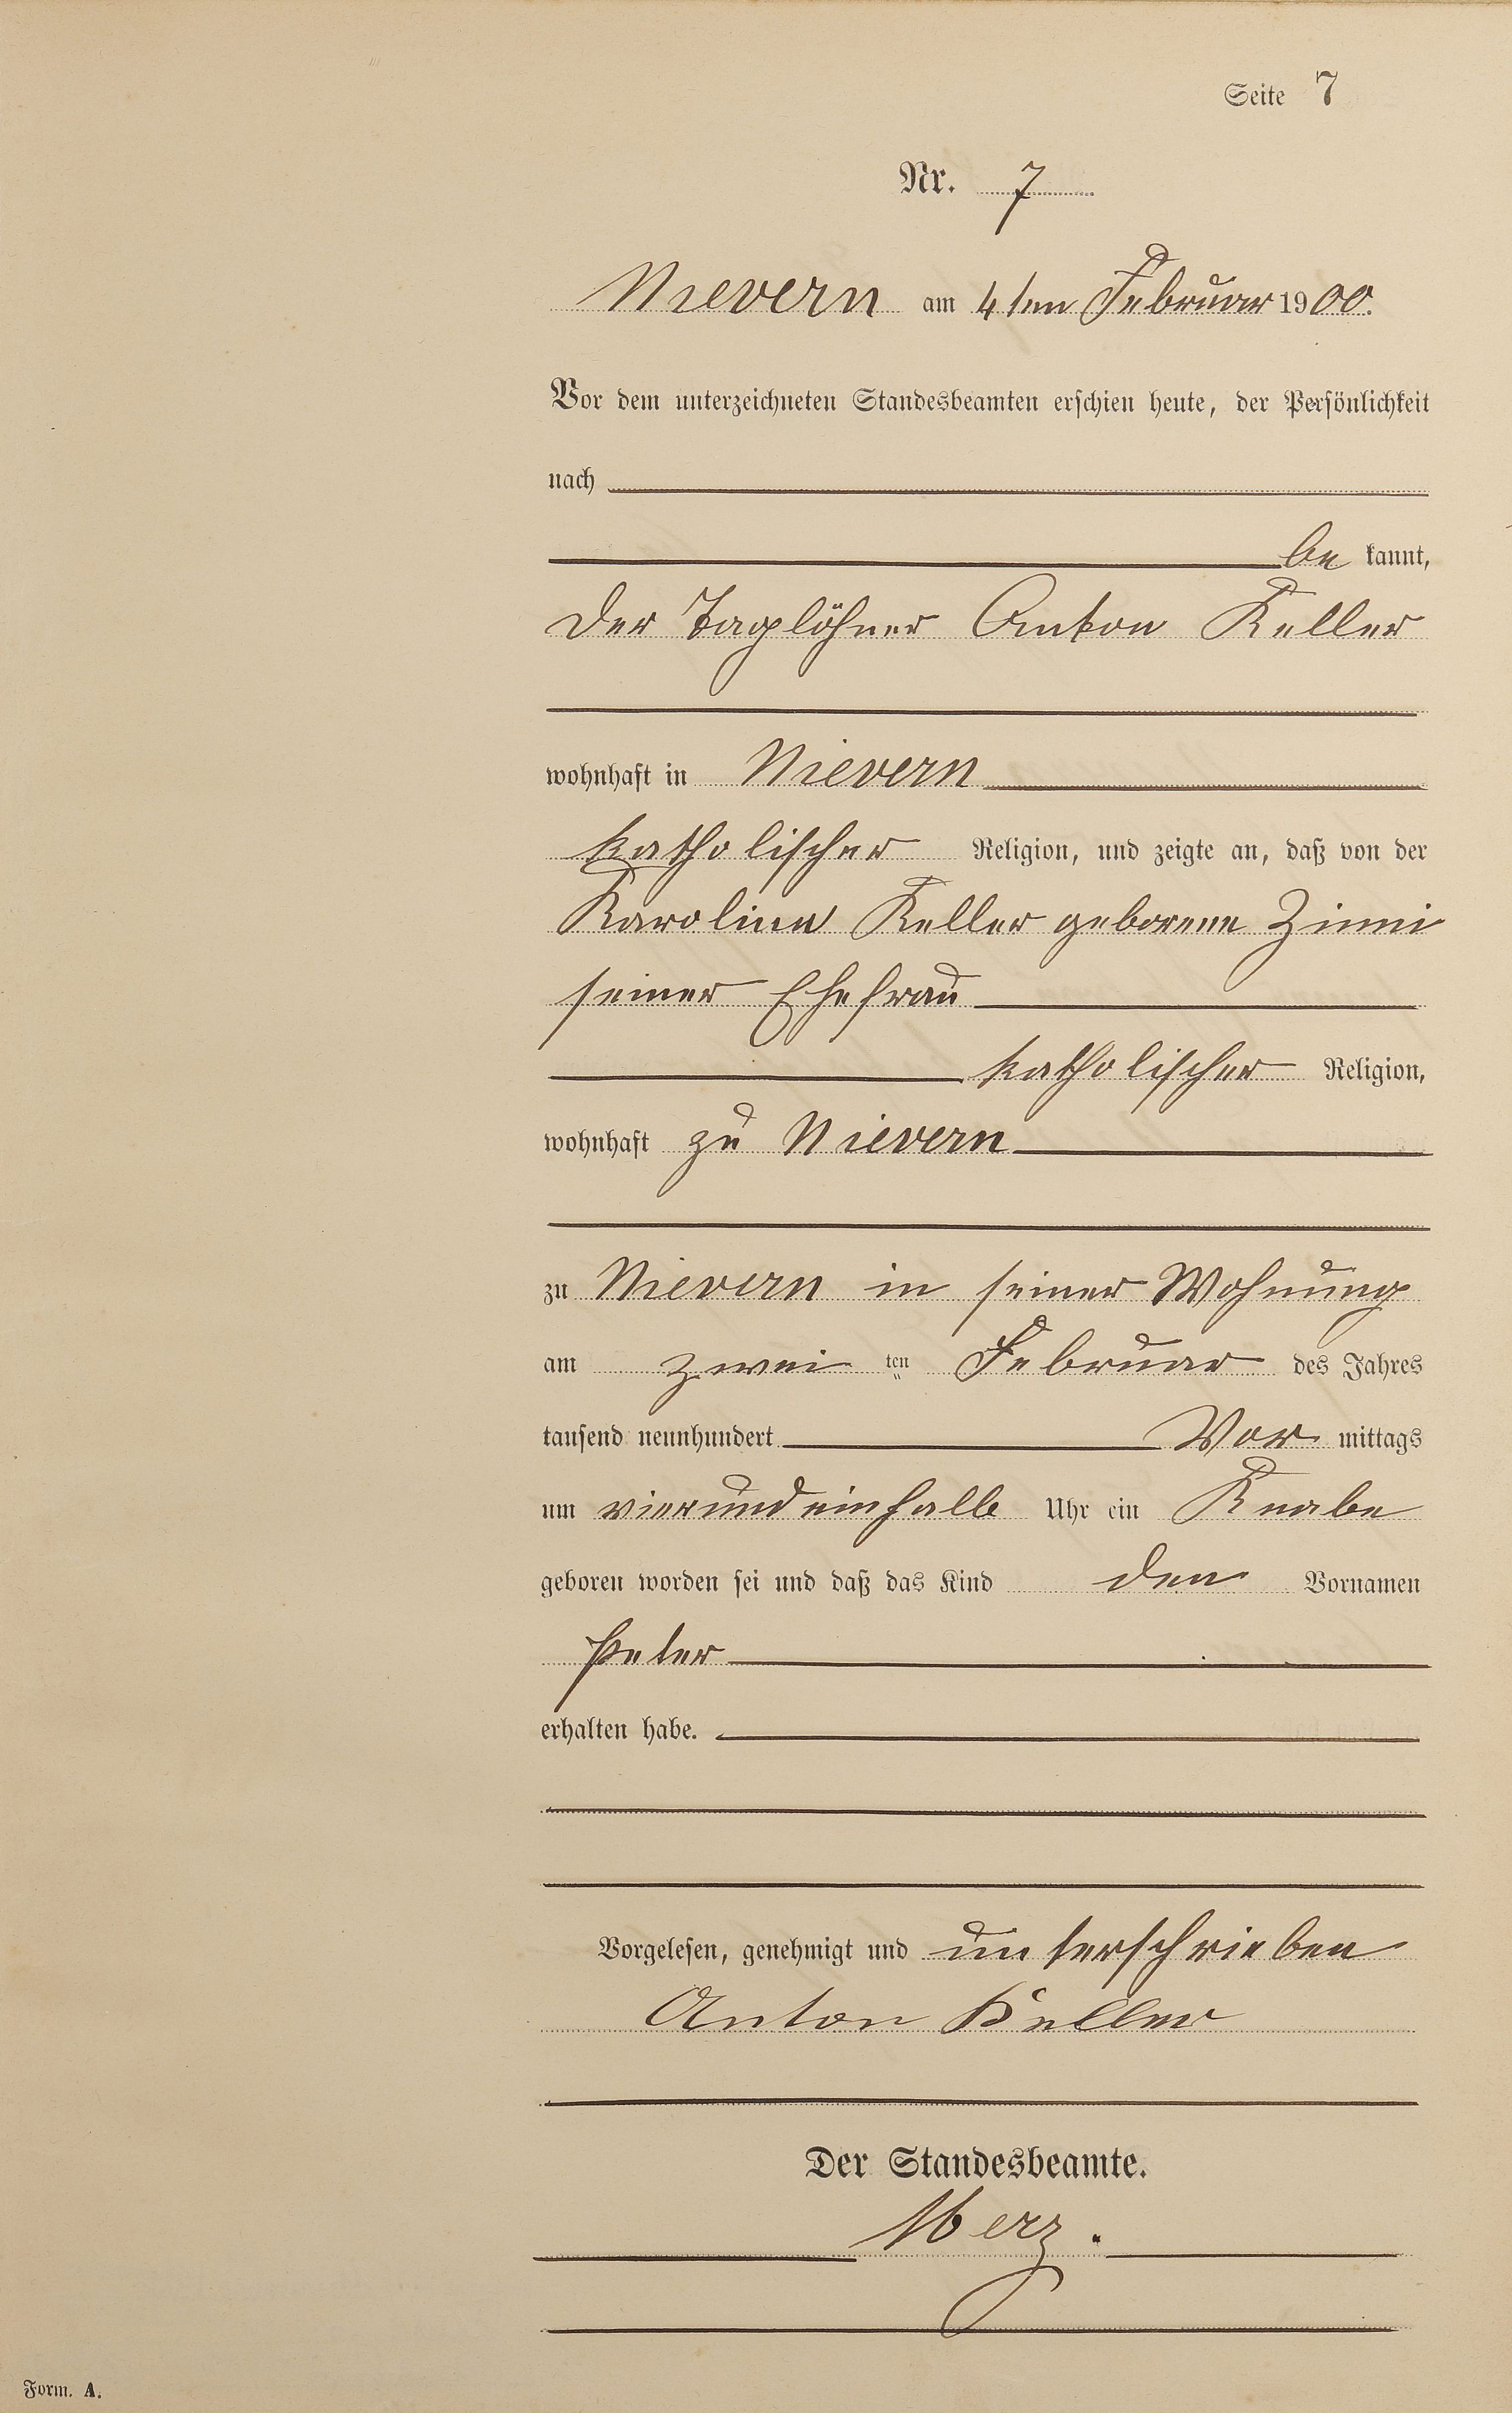 Seite 7
Nr. 7
Nievern am 4ten Februar 1900.
Vor dem unterzeichneten Standesbeamten erschien heute, der Persönlichkeit
nach
be kannt,
der Taglöhner Anton Keller
wohnhaft in Nievern
katholischer Religion, und zeigte an, daß von der
Karolina Keller geborene Zimmi
seiner Ehefrau
katholischer Religion,
wohnhaft zu Nievern
zu Nievern in seiner Wohnung
am zwei ten Februar des Jahres
tausend neunhundert Vor mittags
um vierundeinhalb Uhr ein Knabe
geboren worden sei und daß das Kind den Vornamen
Peter
erhalten habe.
Vorgelesen, genehmigt und unterschrieben
Anton Keller
Der Standesbeamte.
Merz.
Form. A.